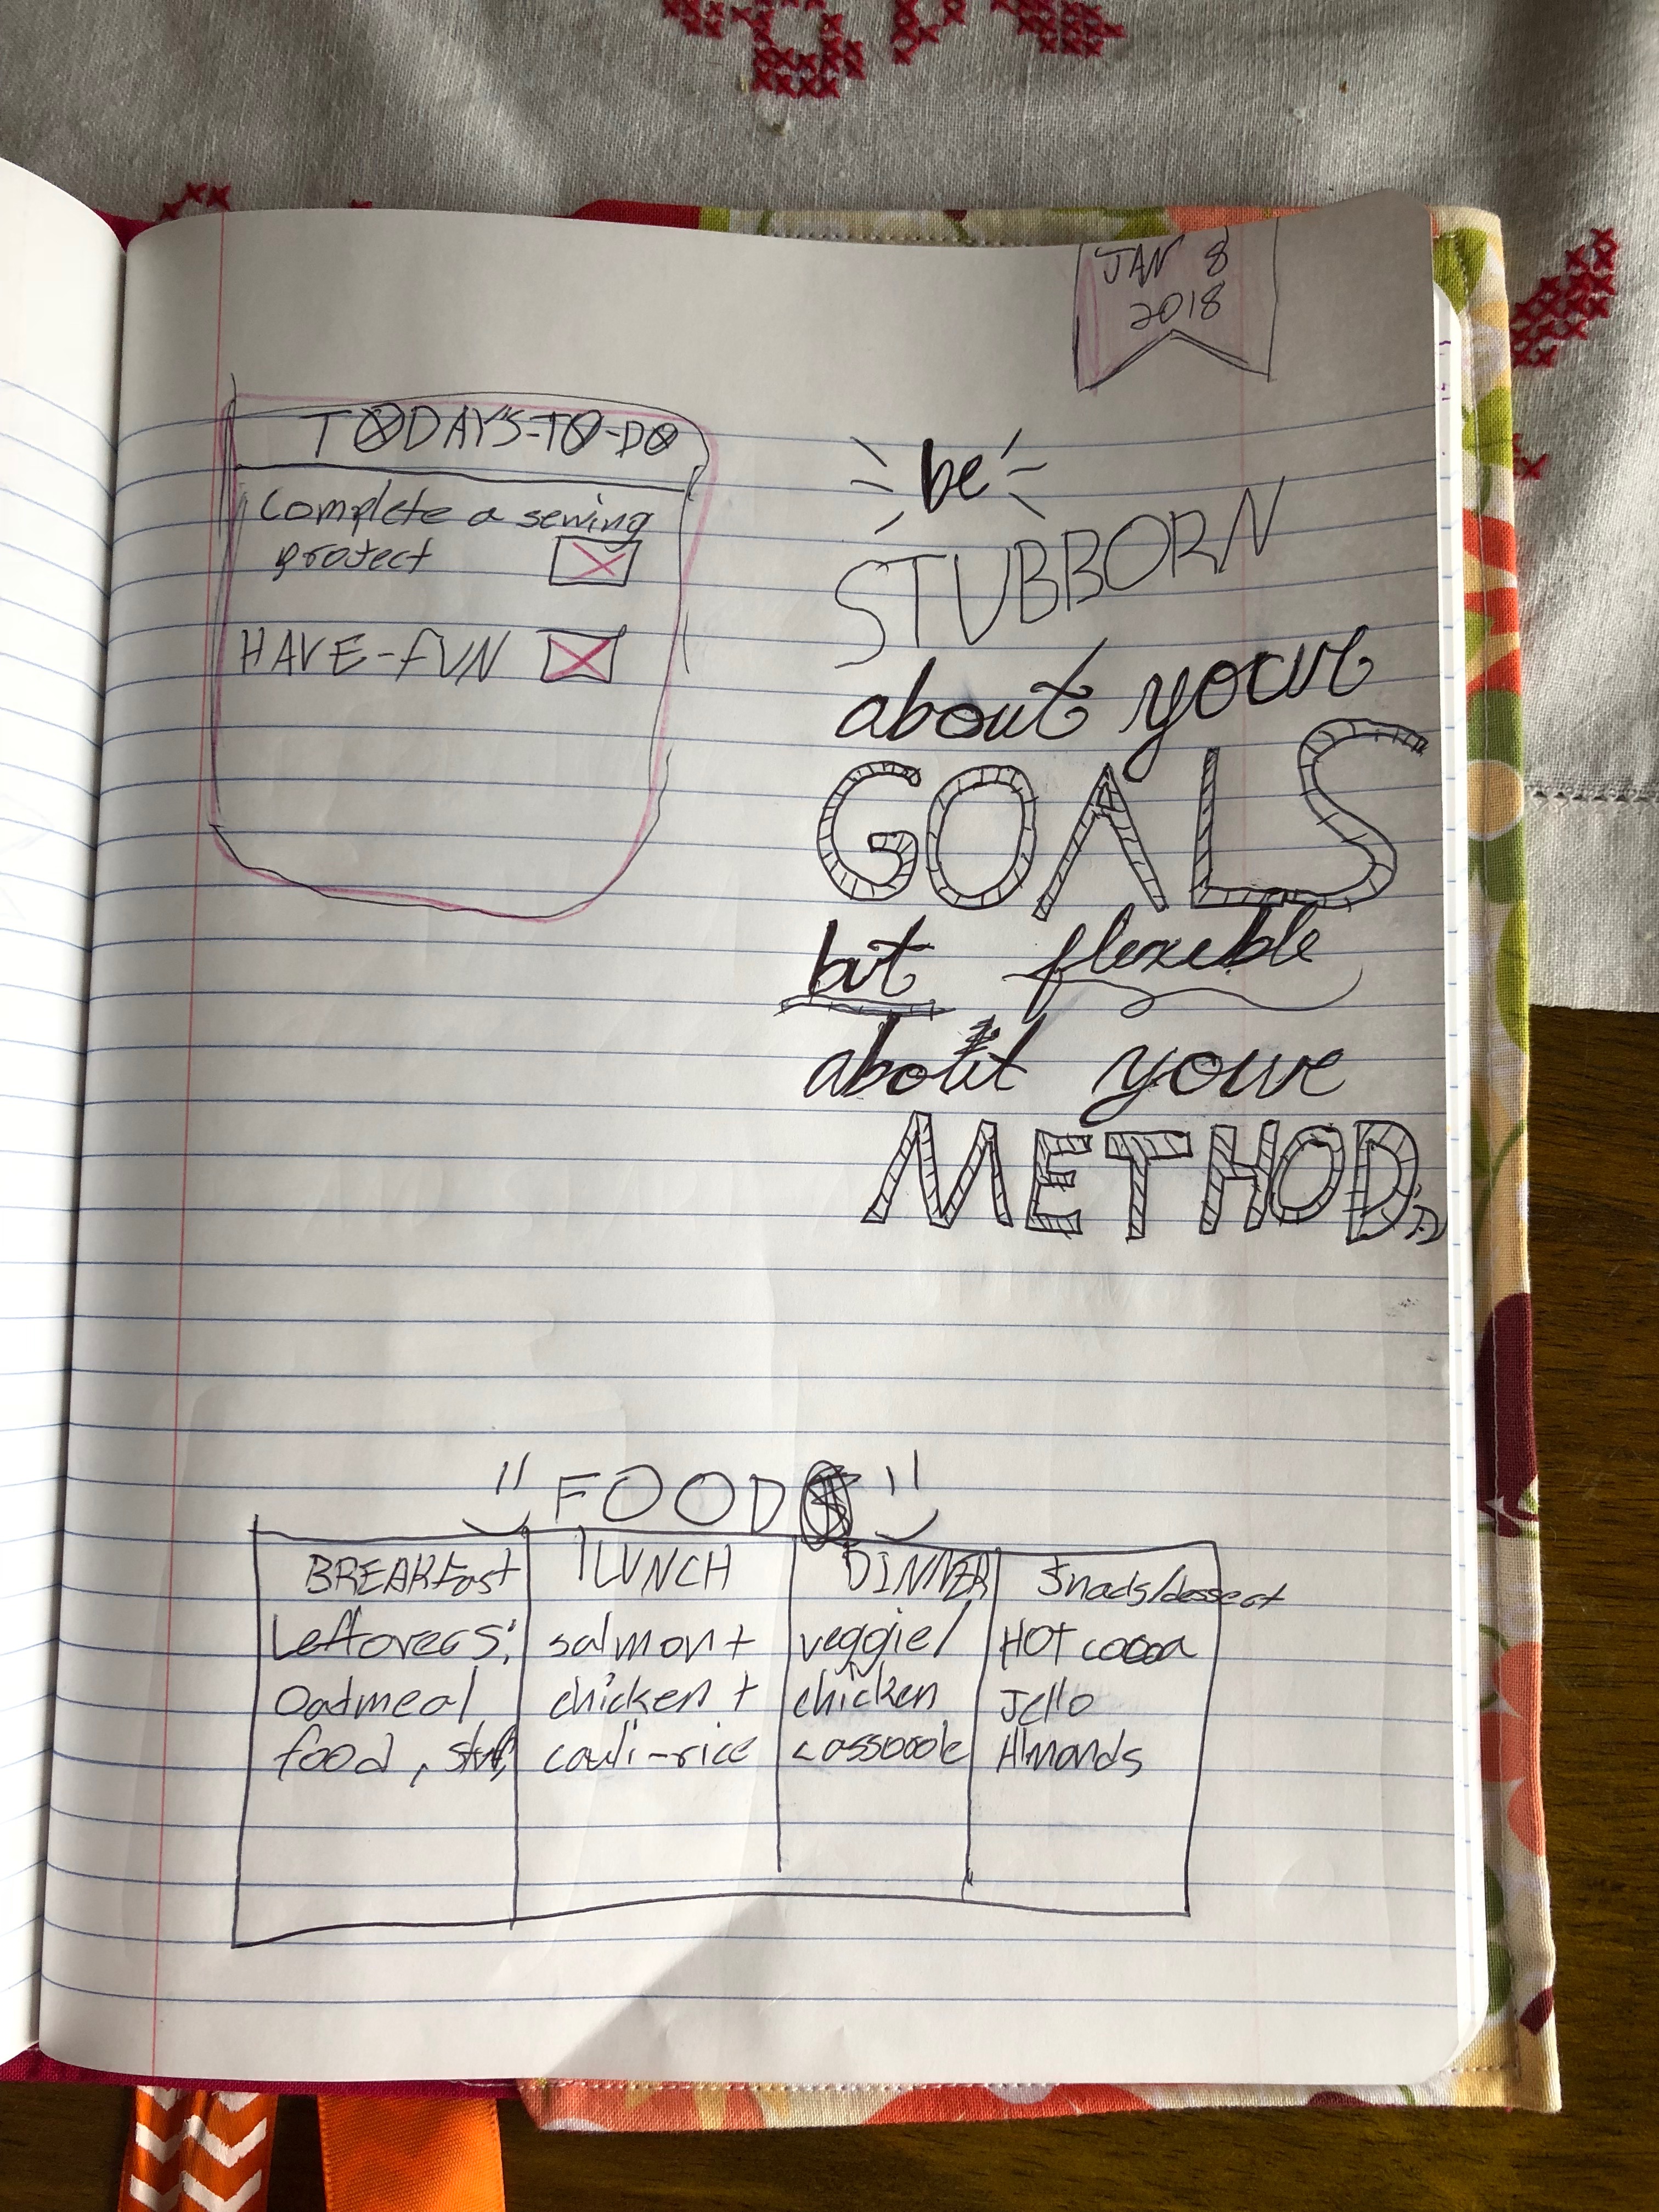 JAN 8
2018
TODAY'S-TO-DO
Complete a sewing
project
HAVE-FUN
be
STUBBORN
about your
GOALS
but flexible
about your
METHODS
FOOD
BREAKfast
Leftovers:
Oatmeal
food, stuff
LUNCH
salmon +
chicken +
cauli-rice
DINNER
veggie/
chicken
casserole
Snacks/dessert
HOT cocoa
Jello
Almonds